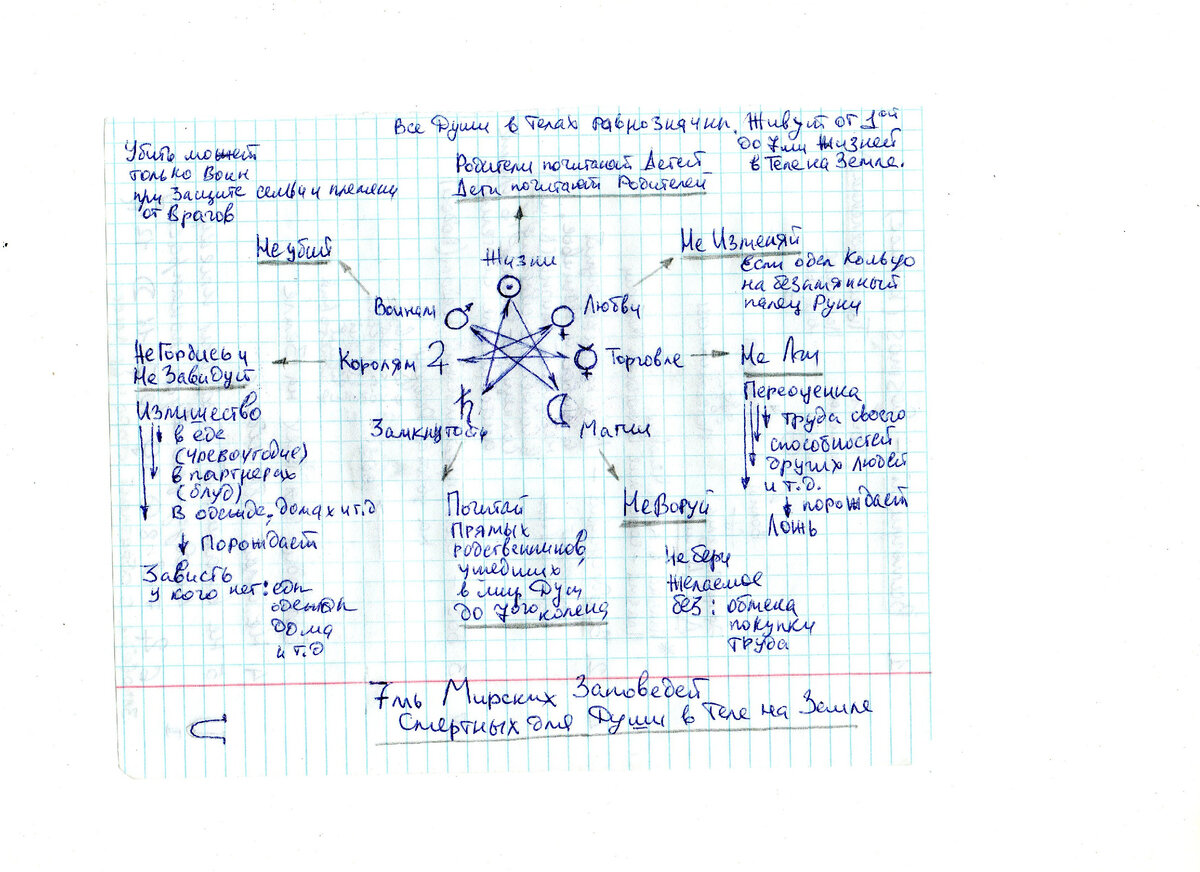 Все Души в Телах равнозначны. Живут от 1ой
до 7ми Жизней
в Теле на Земле.
Убить может
только Воин
при Защите семьи и племени
от Врагов
Родители почитают Детей
Дети почитают Родителей
Не убий
Жизни
Не Изменяй
если одел Кольцо
на безымянный
палец Руки
Воинам
Любви
Не Гордись и
Не Завидуй
Королям
Торговле
Не Лги
Замкнутость
Магии
Излишество
в еде
(чревоугодие)
в партнерах
(блуд)
в одежде, домах и т.д
Порождает
Зависть
у кого нет: еды
одежды
дома
и т.д
Почитай
Прямых
родственников,
ушедших
в мир Душ
до 7ого колена
Не Воруй
Не бери
желаемое
без: обмена
покупки
труда
Переоценка
труда своего
способностей
других людей
и т.д.
порождает
Ложь
7мь Мирских Заповедей
Смертных для Души в Теле на Земле